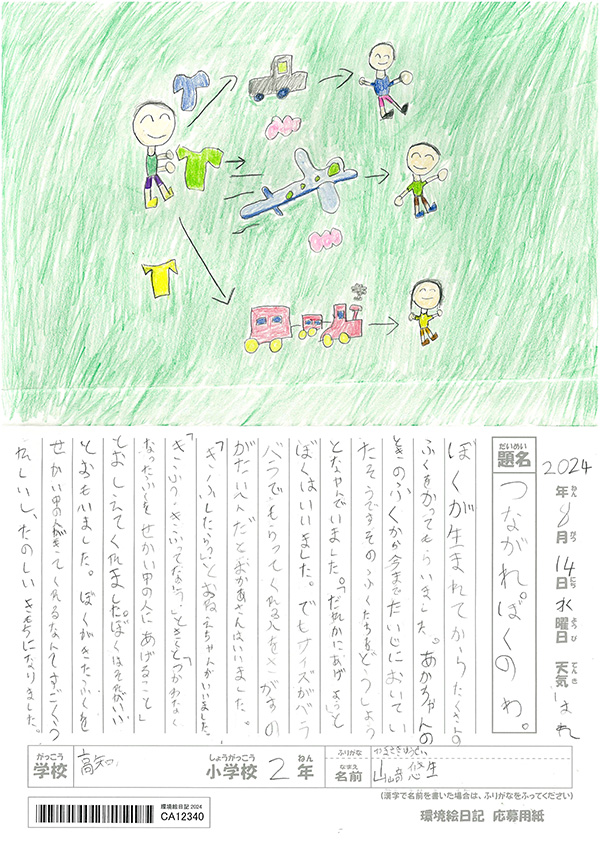 2024年8月14日水曜日 天気 はれ
ねん がつ にち ようび てんき
だいめい
題名
つながれ。ぼくのわ。
ぼくが生まれてからたくさんの
ふくをかってもらいました。あかちゃんの
ときのふくから今までたいじにおいてい
たそうですそのふくたちをどうしよう
となやんでいました。「だれかにあげよう」と
ぼくはいいました。でもサイズがべつ
べつでもらってくれる人をさがすの
がたいへんだとおかあさんはいいました。
「きふしたら。」とおねえちゃんがいいました。
「きふ?きふってなに。」ときくと「つかわなく
なったふくをせかい中の人にあげること」
とおしえてくれました。ぼくはそれがいい
とおもいました。ぼくがきたふくを
せかい中の人がきてくれるなんてすごくう
れしいし、たのしいきもちになりました。
がっこう
学校
高知
しょうがっこう
小学校
2
ねん
年
ふりがな
なまえ
名前
山﨑悠生
(漢字で名前を書いた場合は、ふりがなをふってください)
環境絵日記2024
CA12340
環境絵日記 応募用紙